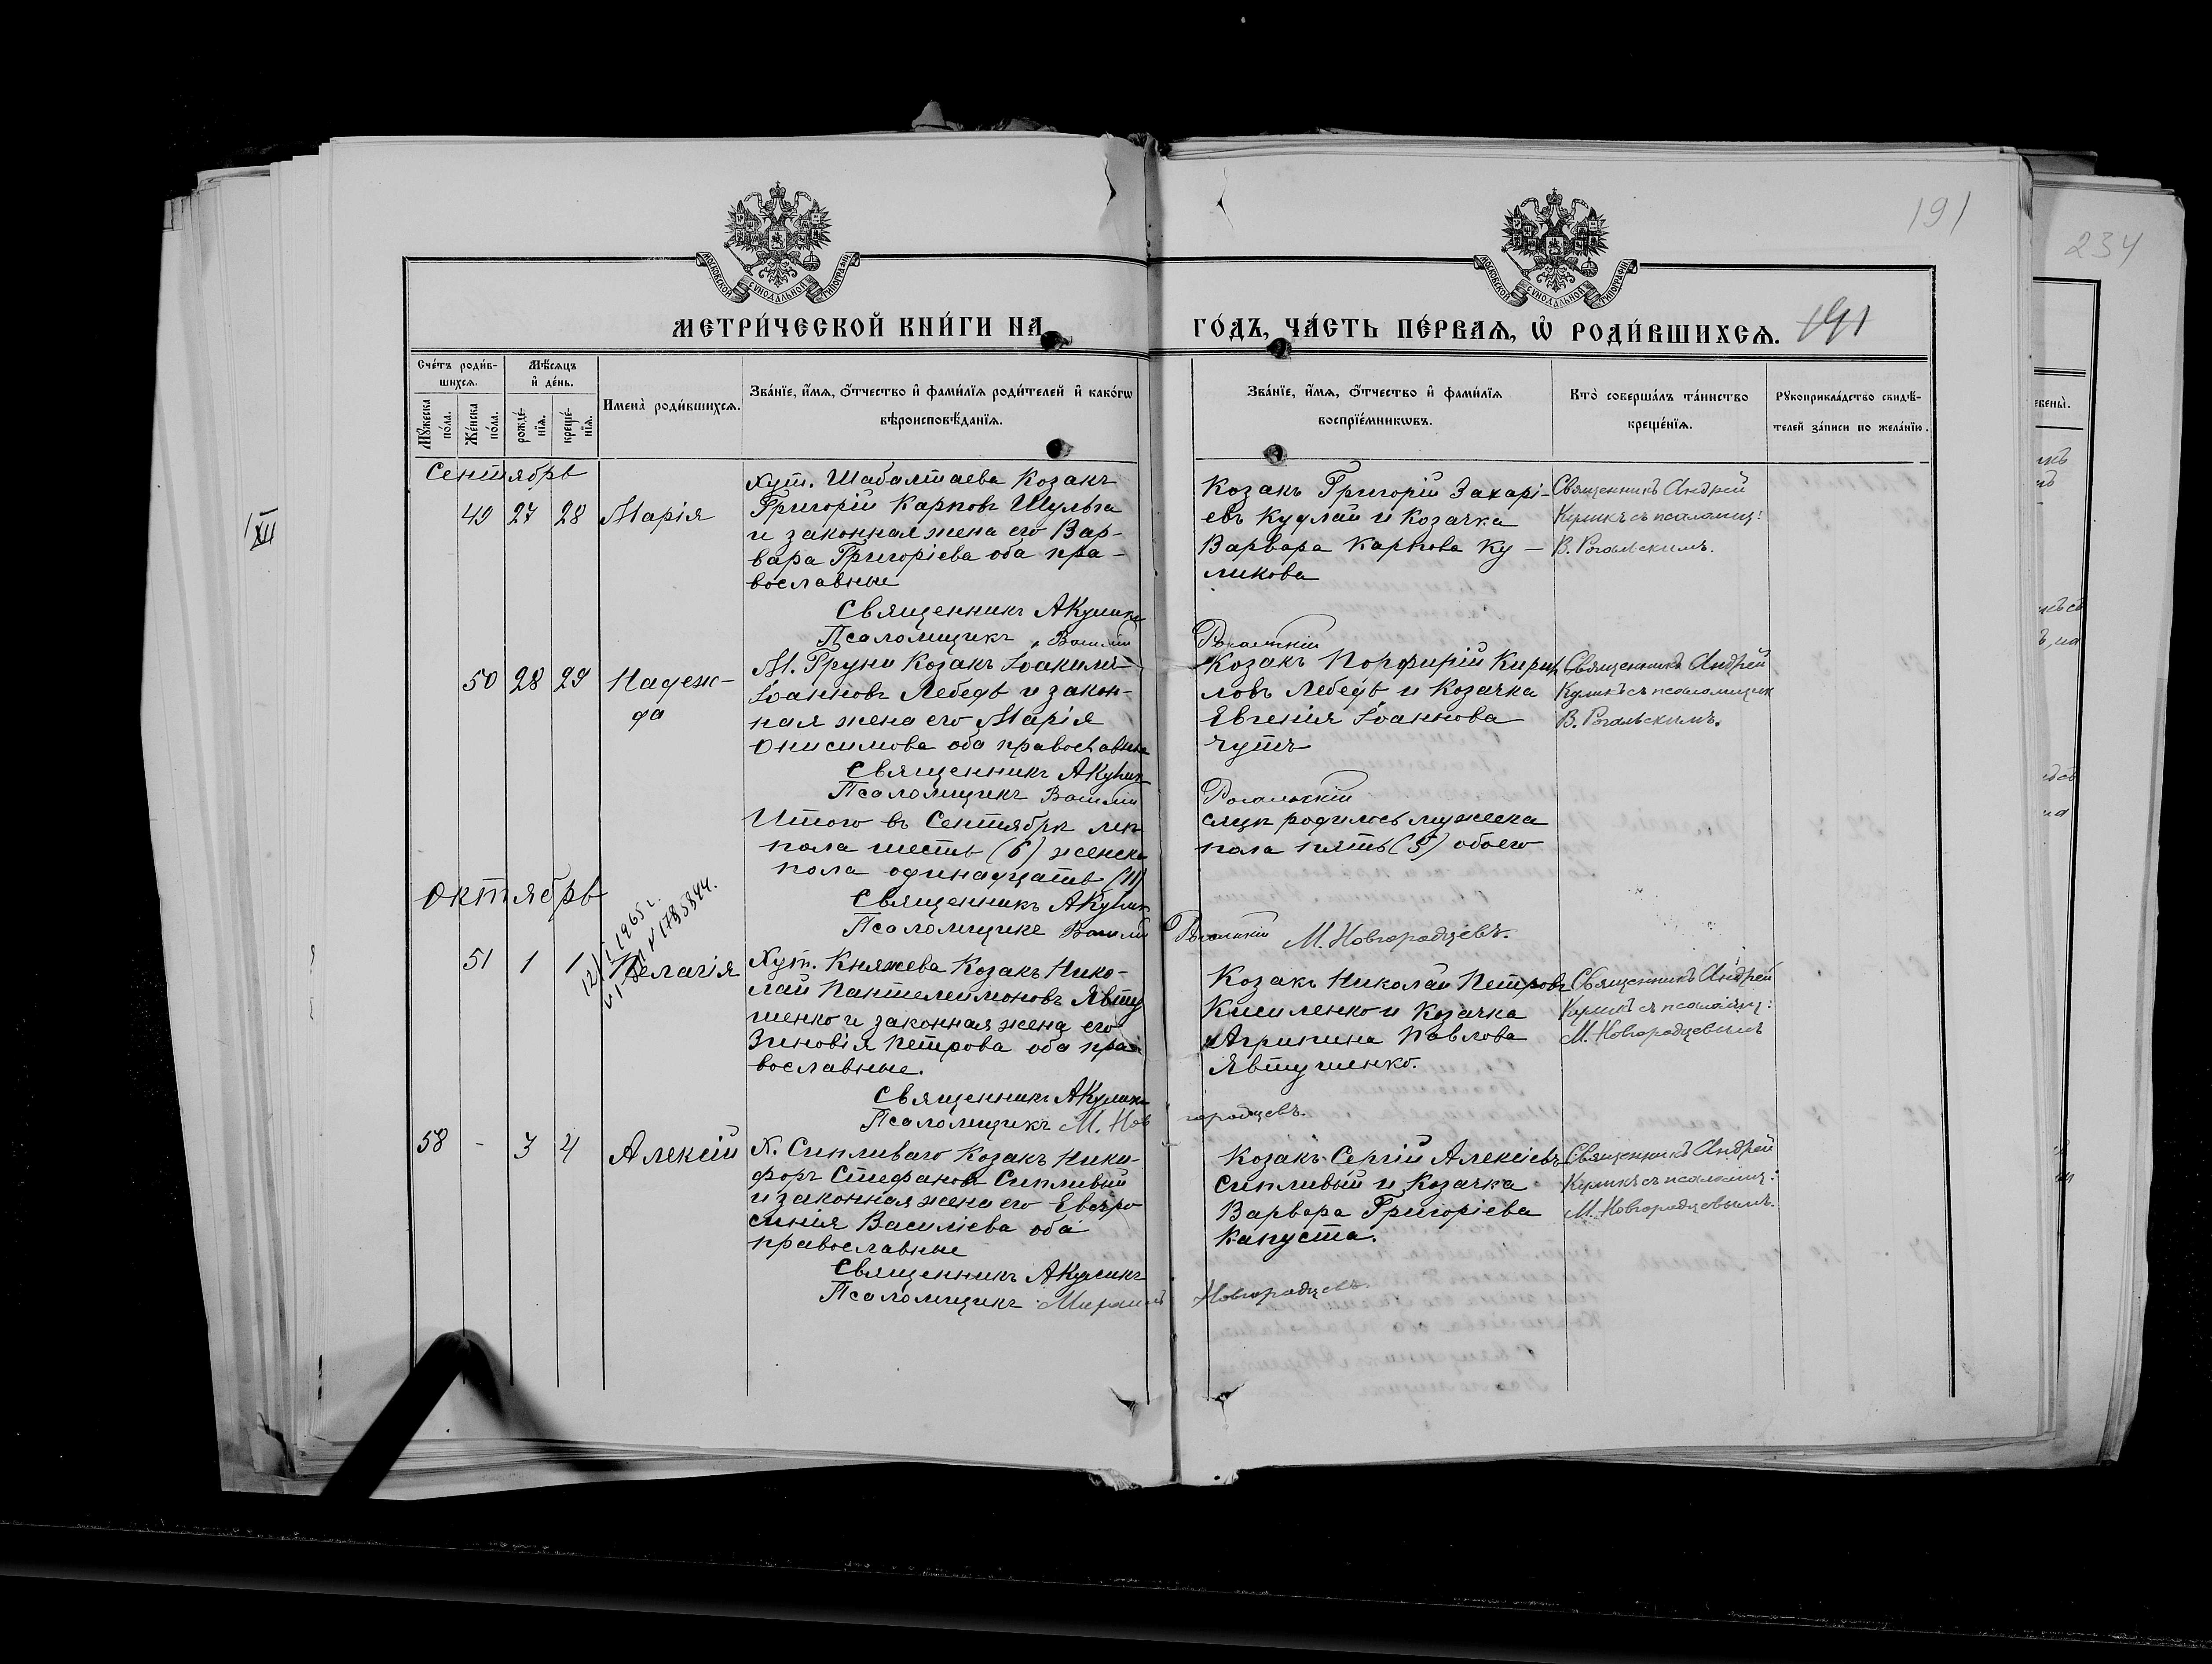 191
234
МОСКОВСКОЙ СУНОДАЛЬНОЙ ТИПОГРАФІИ
МОСКОВСКОЙ СУНОДАЛЬНОЙ ТИПОГРАФІИ
МЕТРИ́ЧЕСКОЙ КНИ́ГИ НА
ГО́ДЪ, ЧА́СТЬ ПЕ́РВАЯ, Ѡ РОДИ́ВШИХСЯ.
191
Сче́тъ роди́в-
шихся.
Мѣ́сяцъ
и де́нь.
Мꙋ́жеска по́ла.
Же́нска по́ла.
рожде́-
нїя.
креще́-
нїя.
Имена̀ роди́вшихся.
Зва́нїе, и́мя, ѻ́тчество и фами́лїя роди́телей и како́гѡ
вѣроисповѣ́данїя.
Зва́нїе, и́мя, ѻ́тчество и фами́лїя
воспрїе́мникѡвъ.
Кто̀ соверша́лъ та́инство
креще́нїя.
Рꙋкоприкла́дство свидѣ́-
телей за́писи по жела́нїю.
Сентябрь
49 27 28 Марія
Хут. Шабалтаева Козакъ
Григорій Карповъ Шульга
и законная жена его Вар-
вара Григоріева оба пра-
вославные
Священникъ А Куликъ
Псаломщикъ Василій Рогальскій
Козакъ Григорій Захарі-
евъ Кудлай и Козачка
Варвара Карпова Ку-
ликова
Священникъ Андрей
Куликъ съ псаломщ:
В. Рогальскимъ.
50 28 29 Надеж-
да
М. Груни Козакъ Іоакимъ
Іоанновъ Лебедь и закон-
ная жена его Марія
Онисимова оба православные
Священникъ А Куликъ
Псаломщикъ Василій Рогальскій
Козакъ Порфирій Кирил
ловъ Лебедь и Козачка
Евгенія Іоаннова
Чутъ
Священникъ Андрей
Куликъ съ псаломщик
В. Рогальскимъ.
Итого въ Сентябрѣ мѣ
сяцѣ родилось мужеска
пола шесть (6) женска
пола пять (5) обоего
пола одинадцать (11)
Священникъ А Куликъ
Псаломщики Василій Рогальскій М. Новгородцевъ.
Октябрь
1965 г.
51 1 1 Пелагія
Хут. Княжева Козакъ Нико-
лай Пантелеимоновъ Явту
шенко и законная жена его
Зиновія Петрова оба пра
вославные.
Священникъ А Куликъ
Псаломщикъ М. Новгородцевъ.
Козакъ Николай Петровъ
Кисиленко и Козачка
Агрипина Павлова
Явтушенко.
Священникъ Андрей
Куликъ съ псаломщ:
М. Новгородцевымъ
58 - 3 4 Алексій
Х. Сипливаго Козакъ Ники-
форъ Стефановъ Сипливый
и законная жена его Евфро
синія Василіева оба
православные
Священникъ А Куликъ
Псаломщикъ Михаилъ Новгородцевъ.
Козакъ Сергій Алексіевъ
Сипливый и Козачка
Варвара Григоріева
Капуста.
Священникъ Андрей
Куликъ съ псаломщ:
М. Новгородцевымъ.
XII